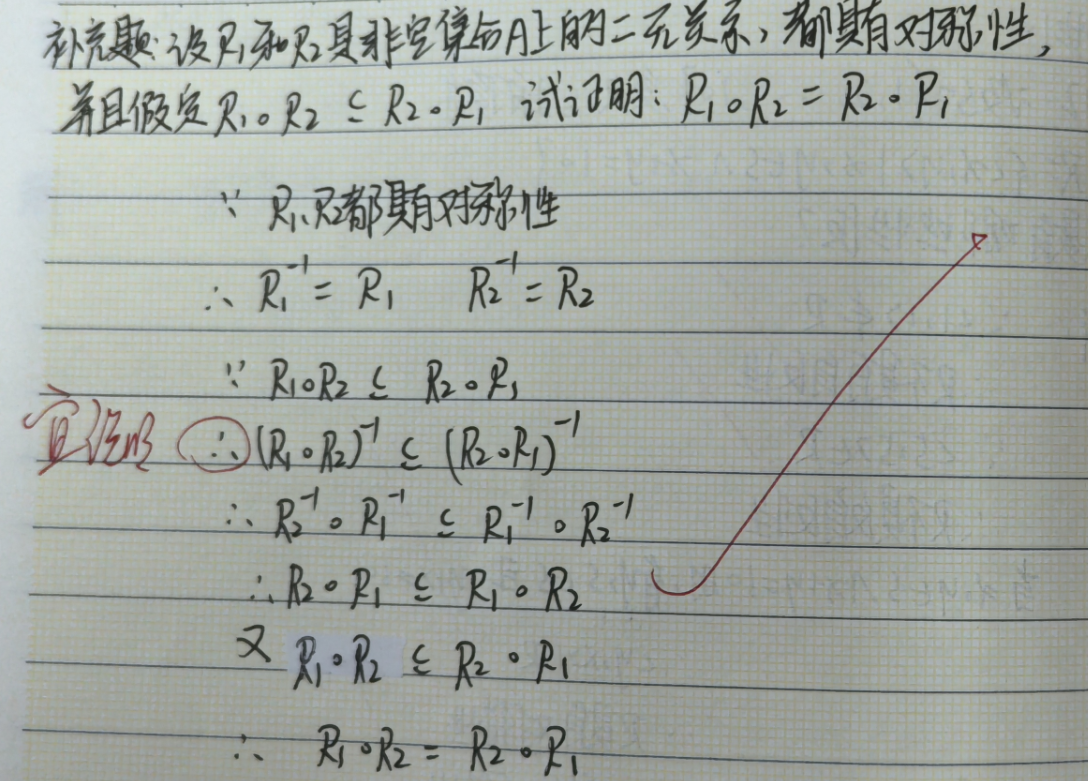 补充题:设R₁和R₂是非空集合A上的二元关系,都具有对称性,
并且假定R₁∘R₂ ⊆ R₂∘R₁ 试证明:R₁∘R₂ = R₂∘R₁
∵ R₁、R₂都具有对称性
∴ R₁⁻¹ = R₁ R₂⁻¹ = R₂
∵ R₁∘R₂ ⊆ R₂∘R₁
∴ (R₁∘R₂)⁻¹ ⊆ (R₂∘R₁)⁻¹
∴ R₂⁻¹∘R₁⁻¹ ⊆ R₁⁻¹∘R₂⁻¹
∴ R₂∘R₁ ⊆ R₁∘R₂
又 R₁∘R₂ ⊆ R₂∘R₁
∴ R₁∘R₂ = R₂∘R₁